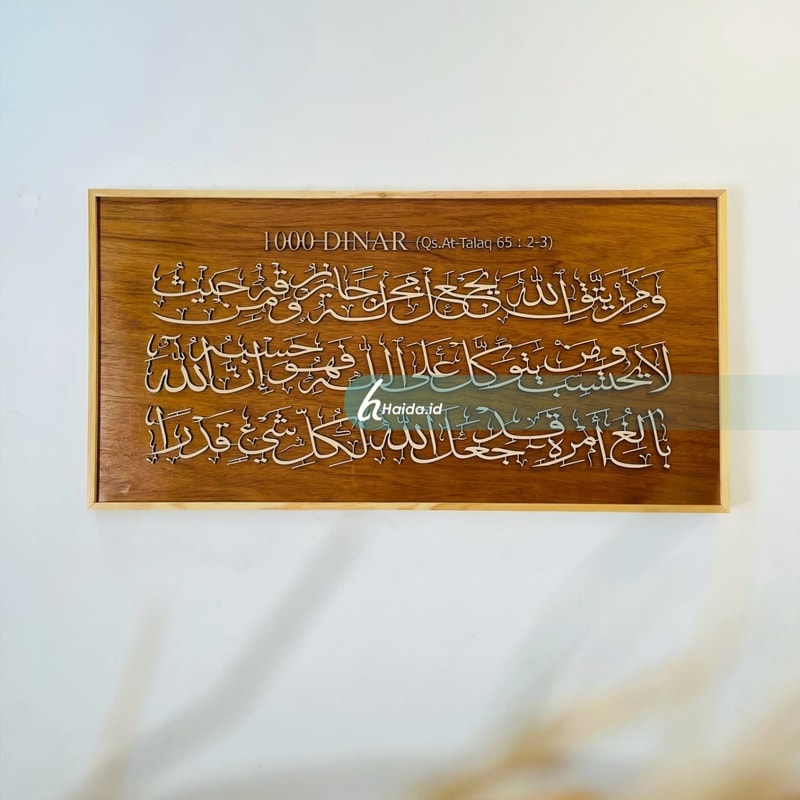 1000 DINAR (Qs.At-Talaq 65 : 2-3)
وَمَن يَتَّقِ اللَّهَ يَجْعَل لَّهُ مَخْرَجًا وَيَرْزُقْهُ مِنْ حَيْثُ
لَا يَحْتَسِبُ وَمَن يَتَوَكَّلْ عَلَى اللَّهِ فَهُوَ حَسْبُهُ إِنَّ اللَّهَ
بَالِغُ أَمْرِهِ قَدْ جَعَلَ اللَّهُ لِكُلِّ شَيْءٍ قَدْرًا
Haida.id